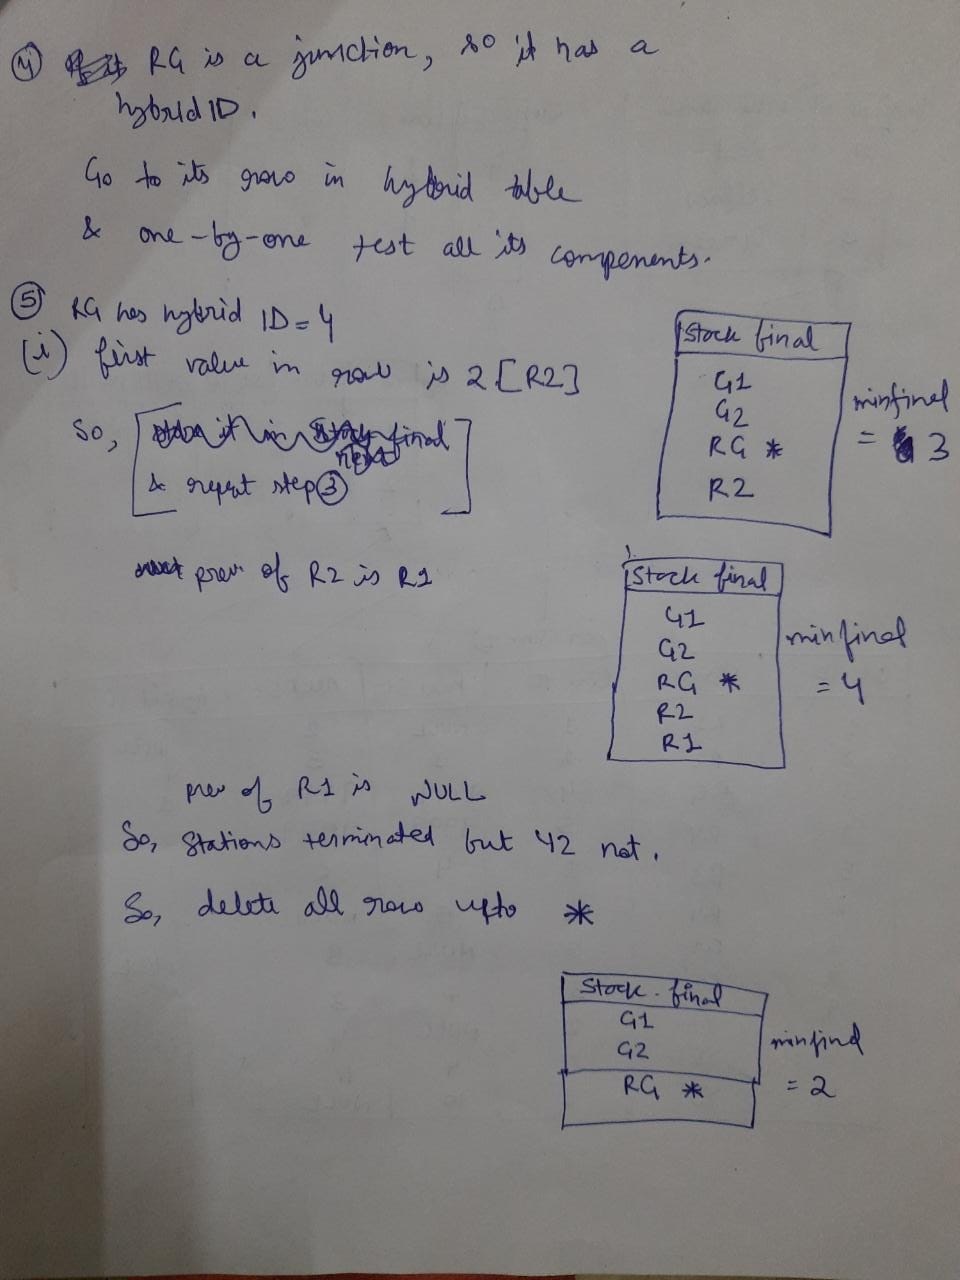 ④ RG is a junction, so it has a
hybrid ID.
Go to its row in hybrid table
& one-by-one test all its components.
⑤ RG has hybrid ID = 4
(i) first value in row is 2 [R2]
So, final
next
& repeat step ③
prev. of R2 is R1
Stack final
G1
G2
RG *
R2
minfinal
= 3
Stack final
G1
G2
RG *
R2
R1
minfinal
= 4
prev of R1 is NULL
So, stations terminated but Y2 not.
So, delete all rows upto *
Stack final
G1
G2
RG *
minfinal
= 2